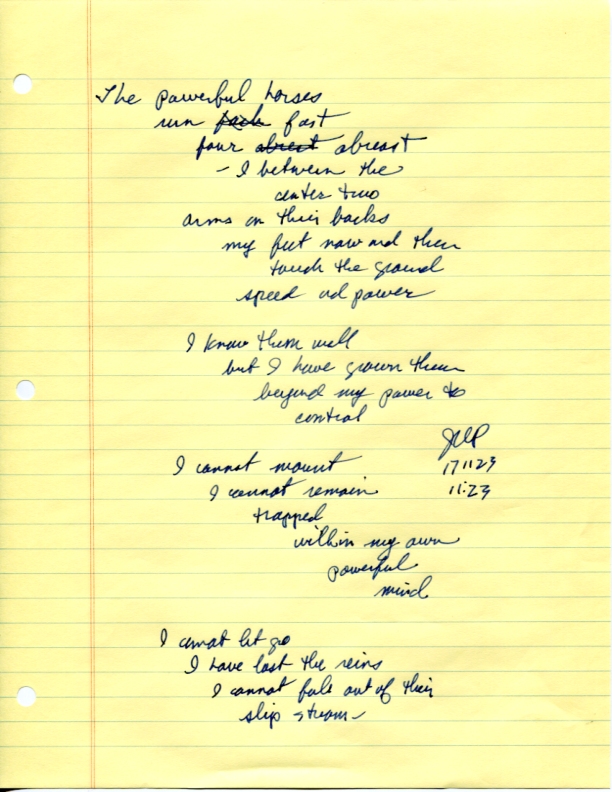 The powerful horses
run fast
four abreast abreast
- I between the
center two
arms on their backs
my feet now and then
touch the ground
speed and power
I know them well
but I have grown them
beyond my power to
control
JWP
171123
11:23
I cannot mount
I cannot remain
trapped
within my own
powerful
mind
I cannot let go
I have lost the reins
I cannot fall out of their
slip stream-